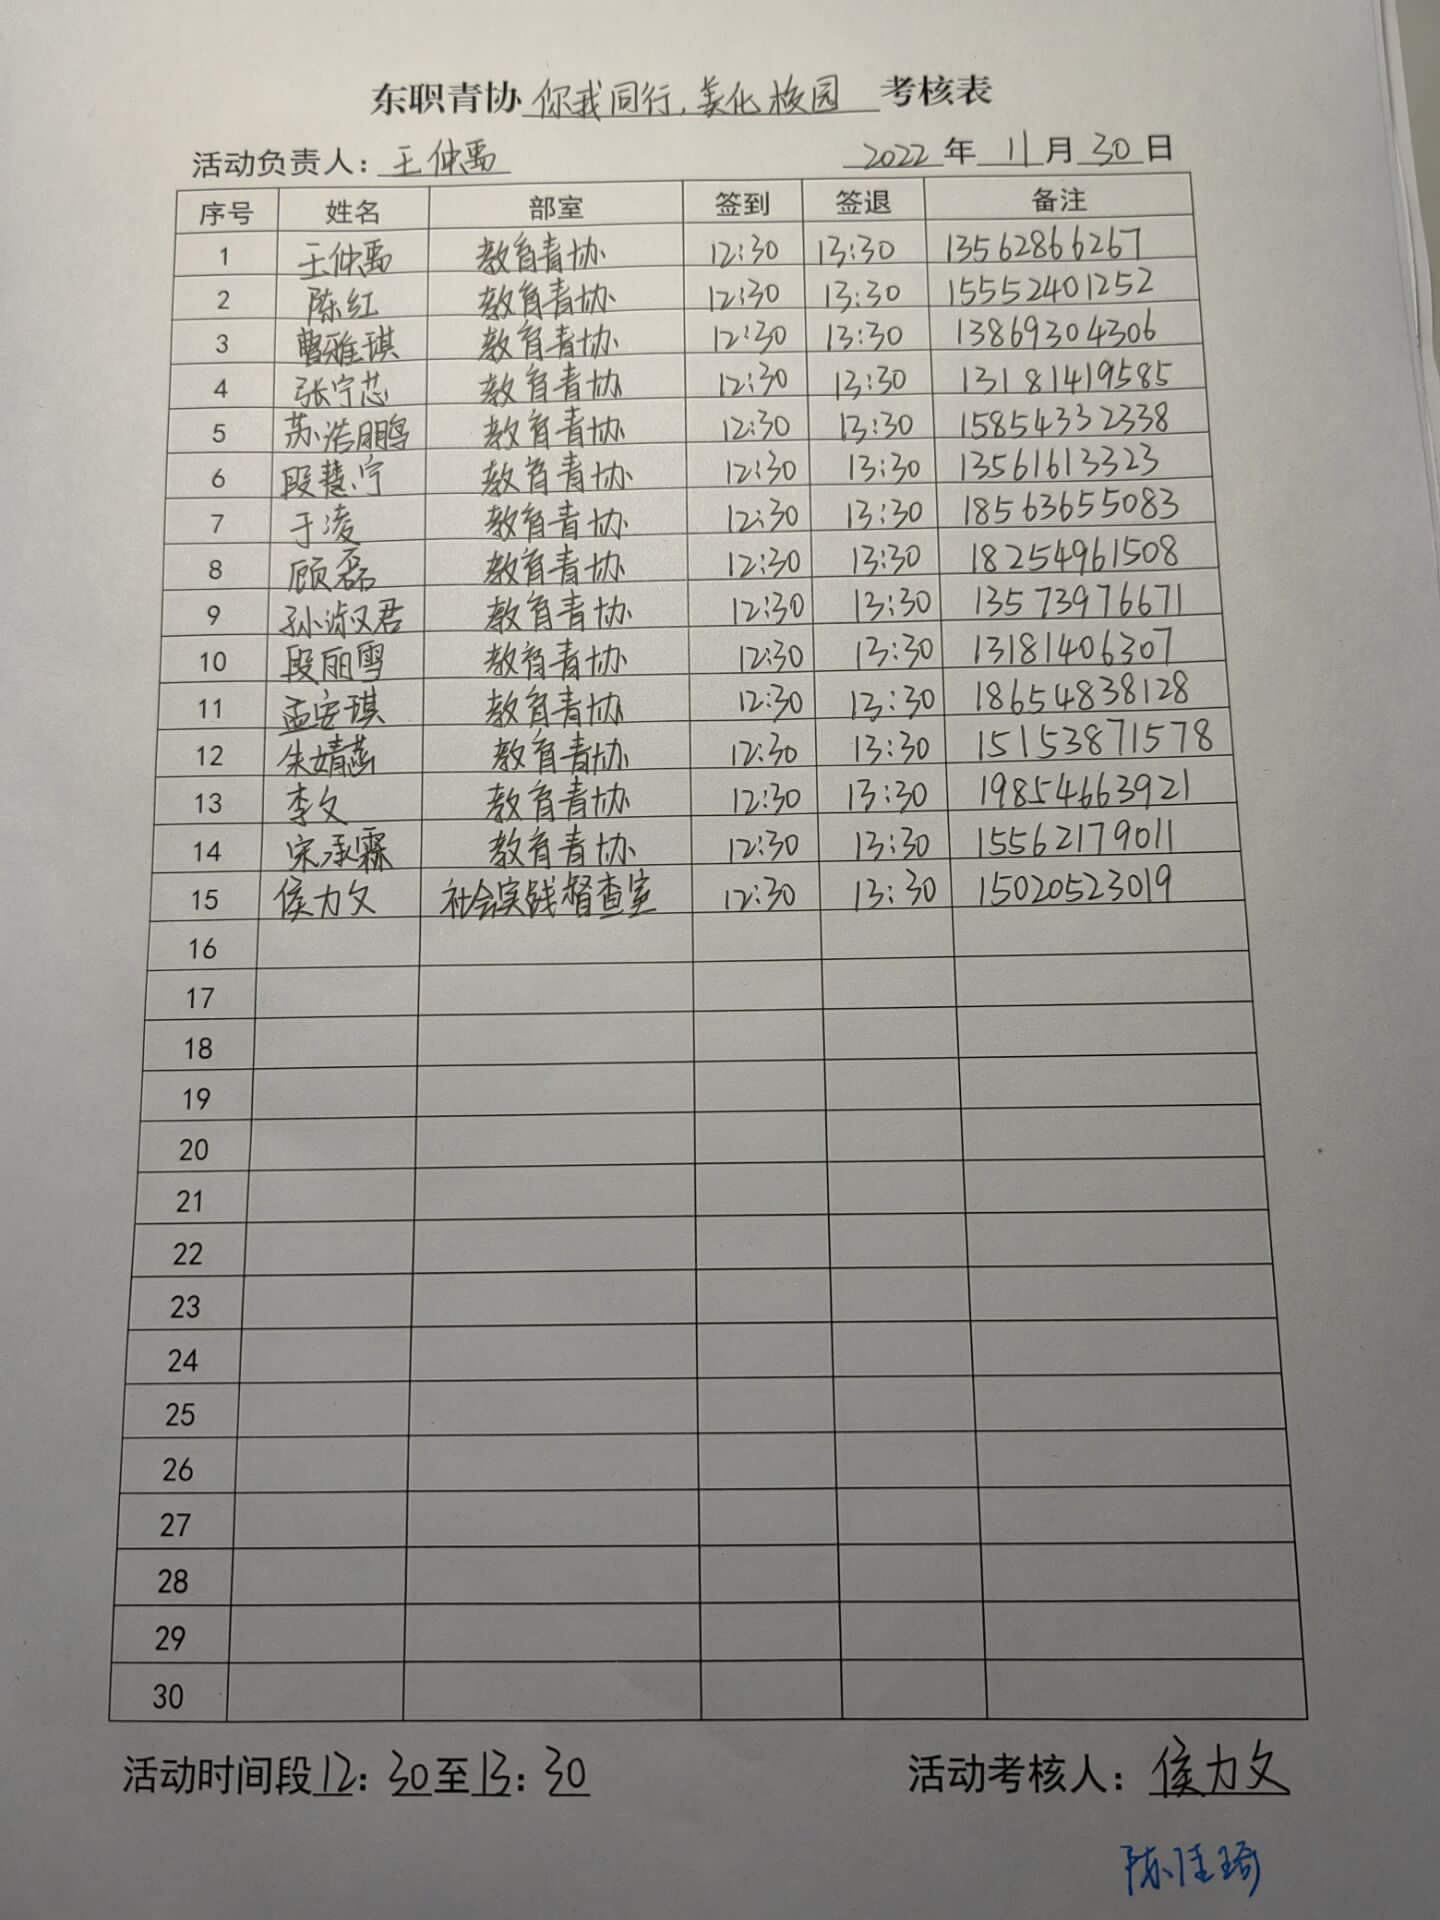 东职青协 你我同行,美化校园 考核表
活动负责人: 王仲禹 2022年11月30日
序号 姓名 部室 签到 签退 备注
1 王仲禹 教育青协 12:30 13:30 13562866267
2 陈红 教育青协 12:30 13:30 15552401252
3 曹雅琪 教育青协 12:30 13:30 13869304306
4 张宁芯 教育青协 12:30 13:30 13181419585
5 苏浩鹏 教育青协 12:30 13:30 15854332338
6 段慧宁 教育青协 12:30 13:30 13561613323
7 于凌 教育青协 12:30 13:30 18563655083
8 顾磊 教育青协 12:30 13:30 18254961508
9 孙淑君 教育青协 12:30 13:30 13573976671
10 段丽雪 教育青协 12:30 13:30 13181406307
11 孟安琪 教育青协 12:30 13:30 18654838128
12 朱婧燕 教育青协 12:30 13:30 15153871578
13 李文 教育青协 12:30 13:30 19854663921
14 宋承霖 教育青协 12:30 13:30 15562179011
15 侯力文 社会实践督查室 12:30 13:30 15020523019
16
17
18
19
20
21
22
23
24
25
26
27
28
29
30
活动时间段12:30至13:30 活动考核人: 侯力文
陈佳琦